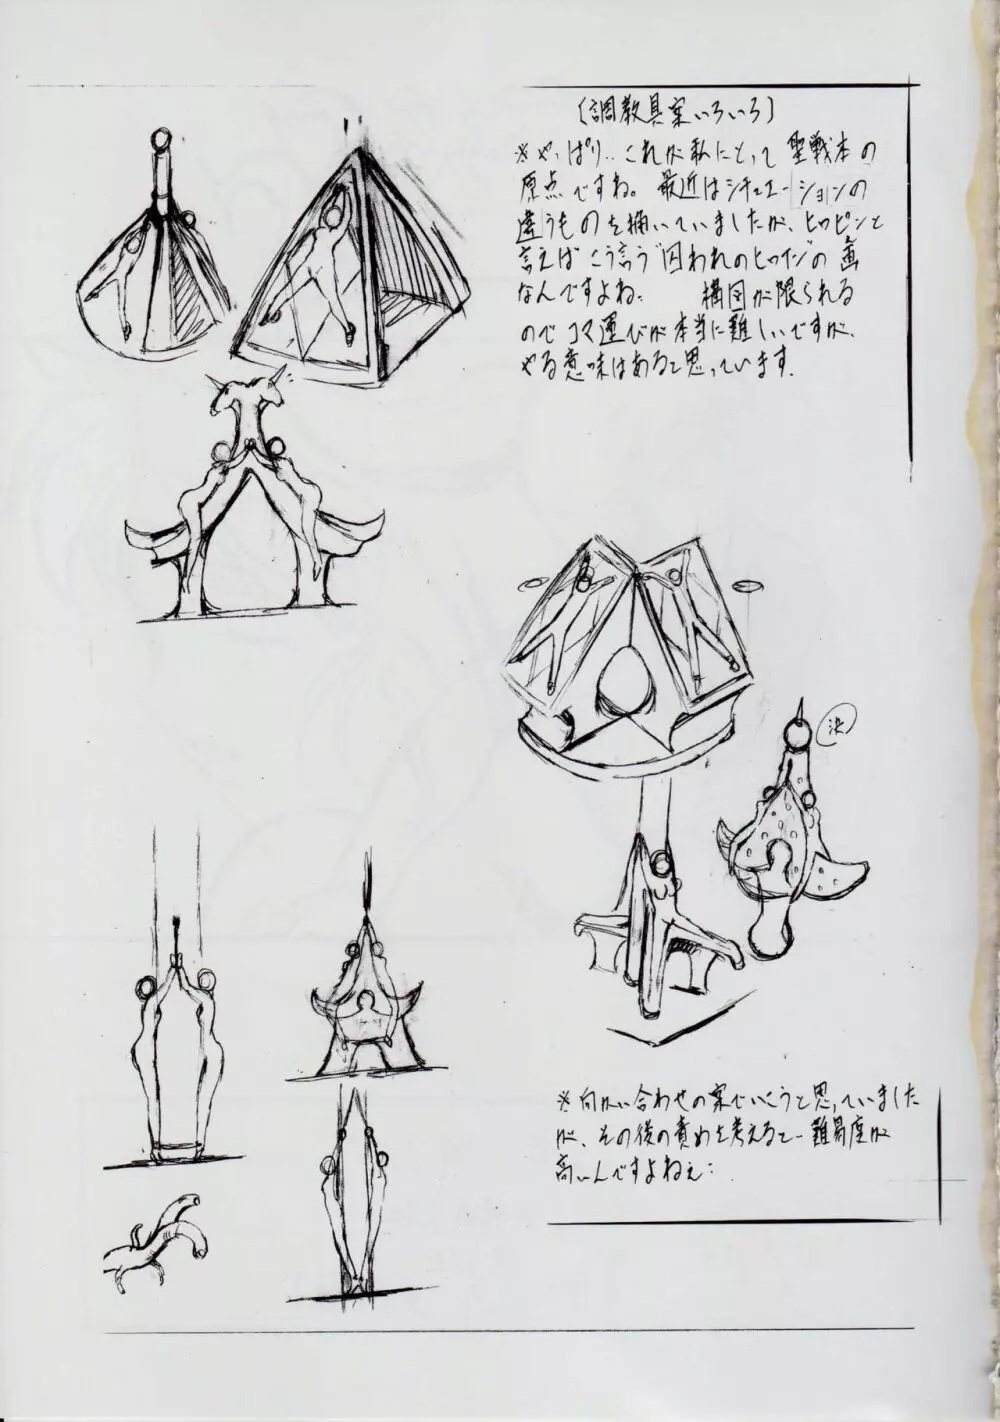 〔調教具案いろいろ〕
※やっぱり‥これが私にとって聖戦本の
原点ですね。最近はシチュエーションの
違うものを描いていましたが、ヒロピンと
言えばこう言う“囚われのヒロインの画
なんですよね、 構図が限られる
のでコマ運びが本当に難しいですが、
やる意味はあると思っています.
決
※向かい合わせの案でいこうと思っていました
が、その後の責めを考えると…難易度が
高いんですよねぇ…